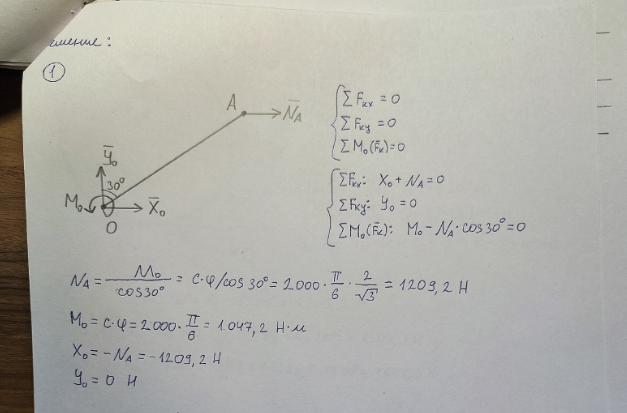 шение:
1
A
N̄A
ΣFkx = 0
ΣFky = 0
ΣM₀(F̄k) = 0
Ȳ₀
30°
M₀
X̄₀
O
ΣFkx: X₀ + NA = 0
ΣFky: Y₀ = 0
ΣM₀(F̄k): M₀ - NA·cos30° = 0
NA = M₀/cos30° = c·φ/cos30° = 2000·π/6·2/√3 = 1209,2 Н
M₀ = c·φ = 2000·π/6 = 1047,2 Н·м
X₀ = -NA = -1209,2 Н
Y₀ = 0 Н